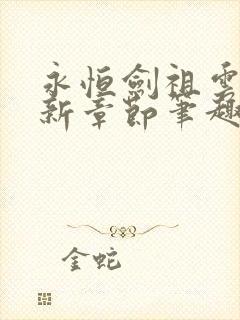 永恒劍祖
新章節筆趣
金蛇